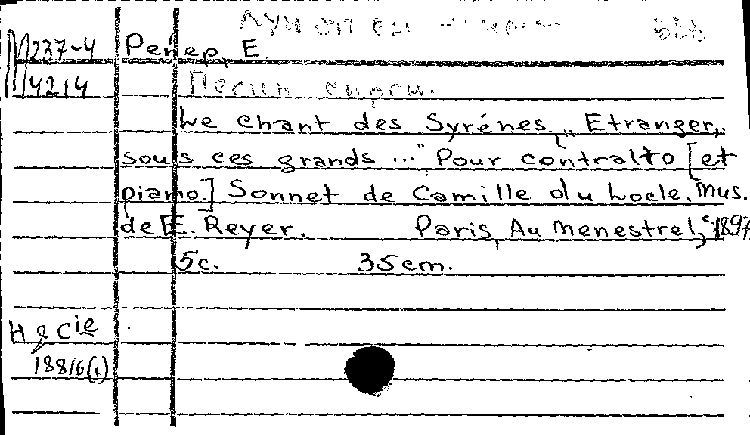 М237-4 Рейер, Е
М4214
Le chant des Syrénes „Etranger,
sous ces grands ..." Pour contralto [et
piano.] Sonnet de Camille du Locle. Mus.
de E. Reyer. Paris, Au menestrel, c1897
5c. 35cm.
H & Cie
18816(1)